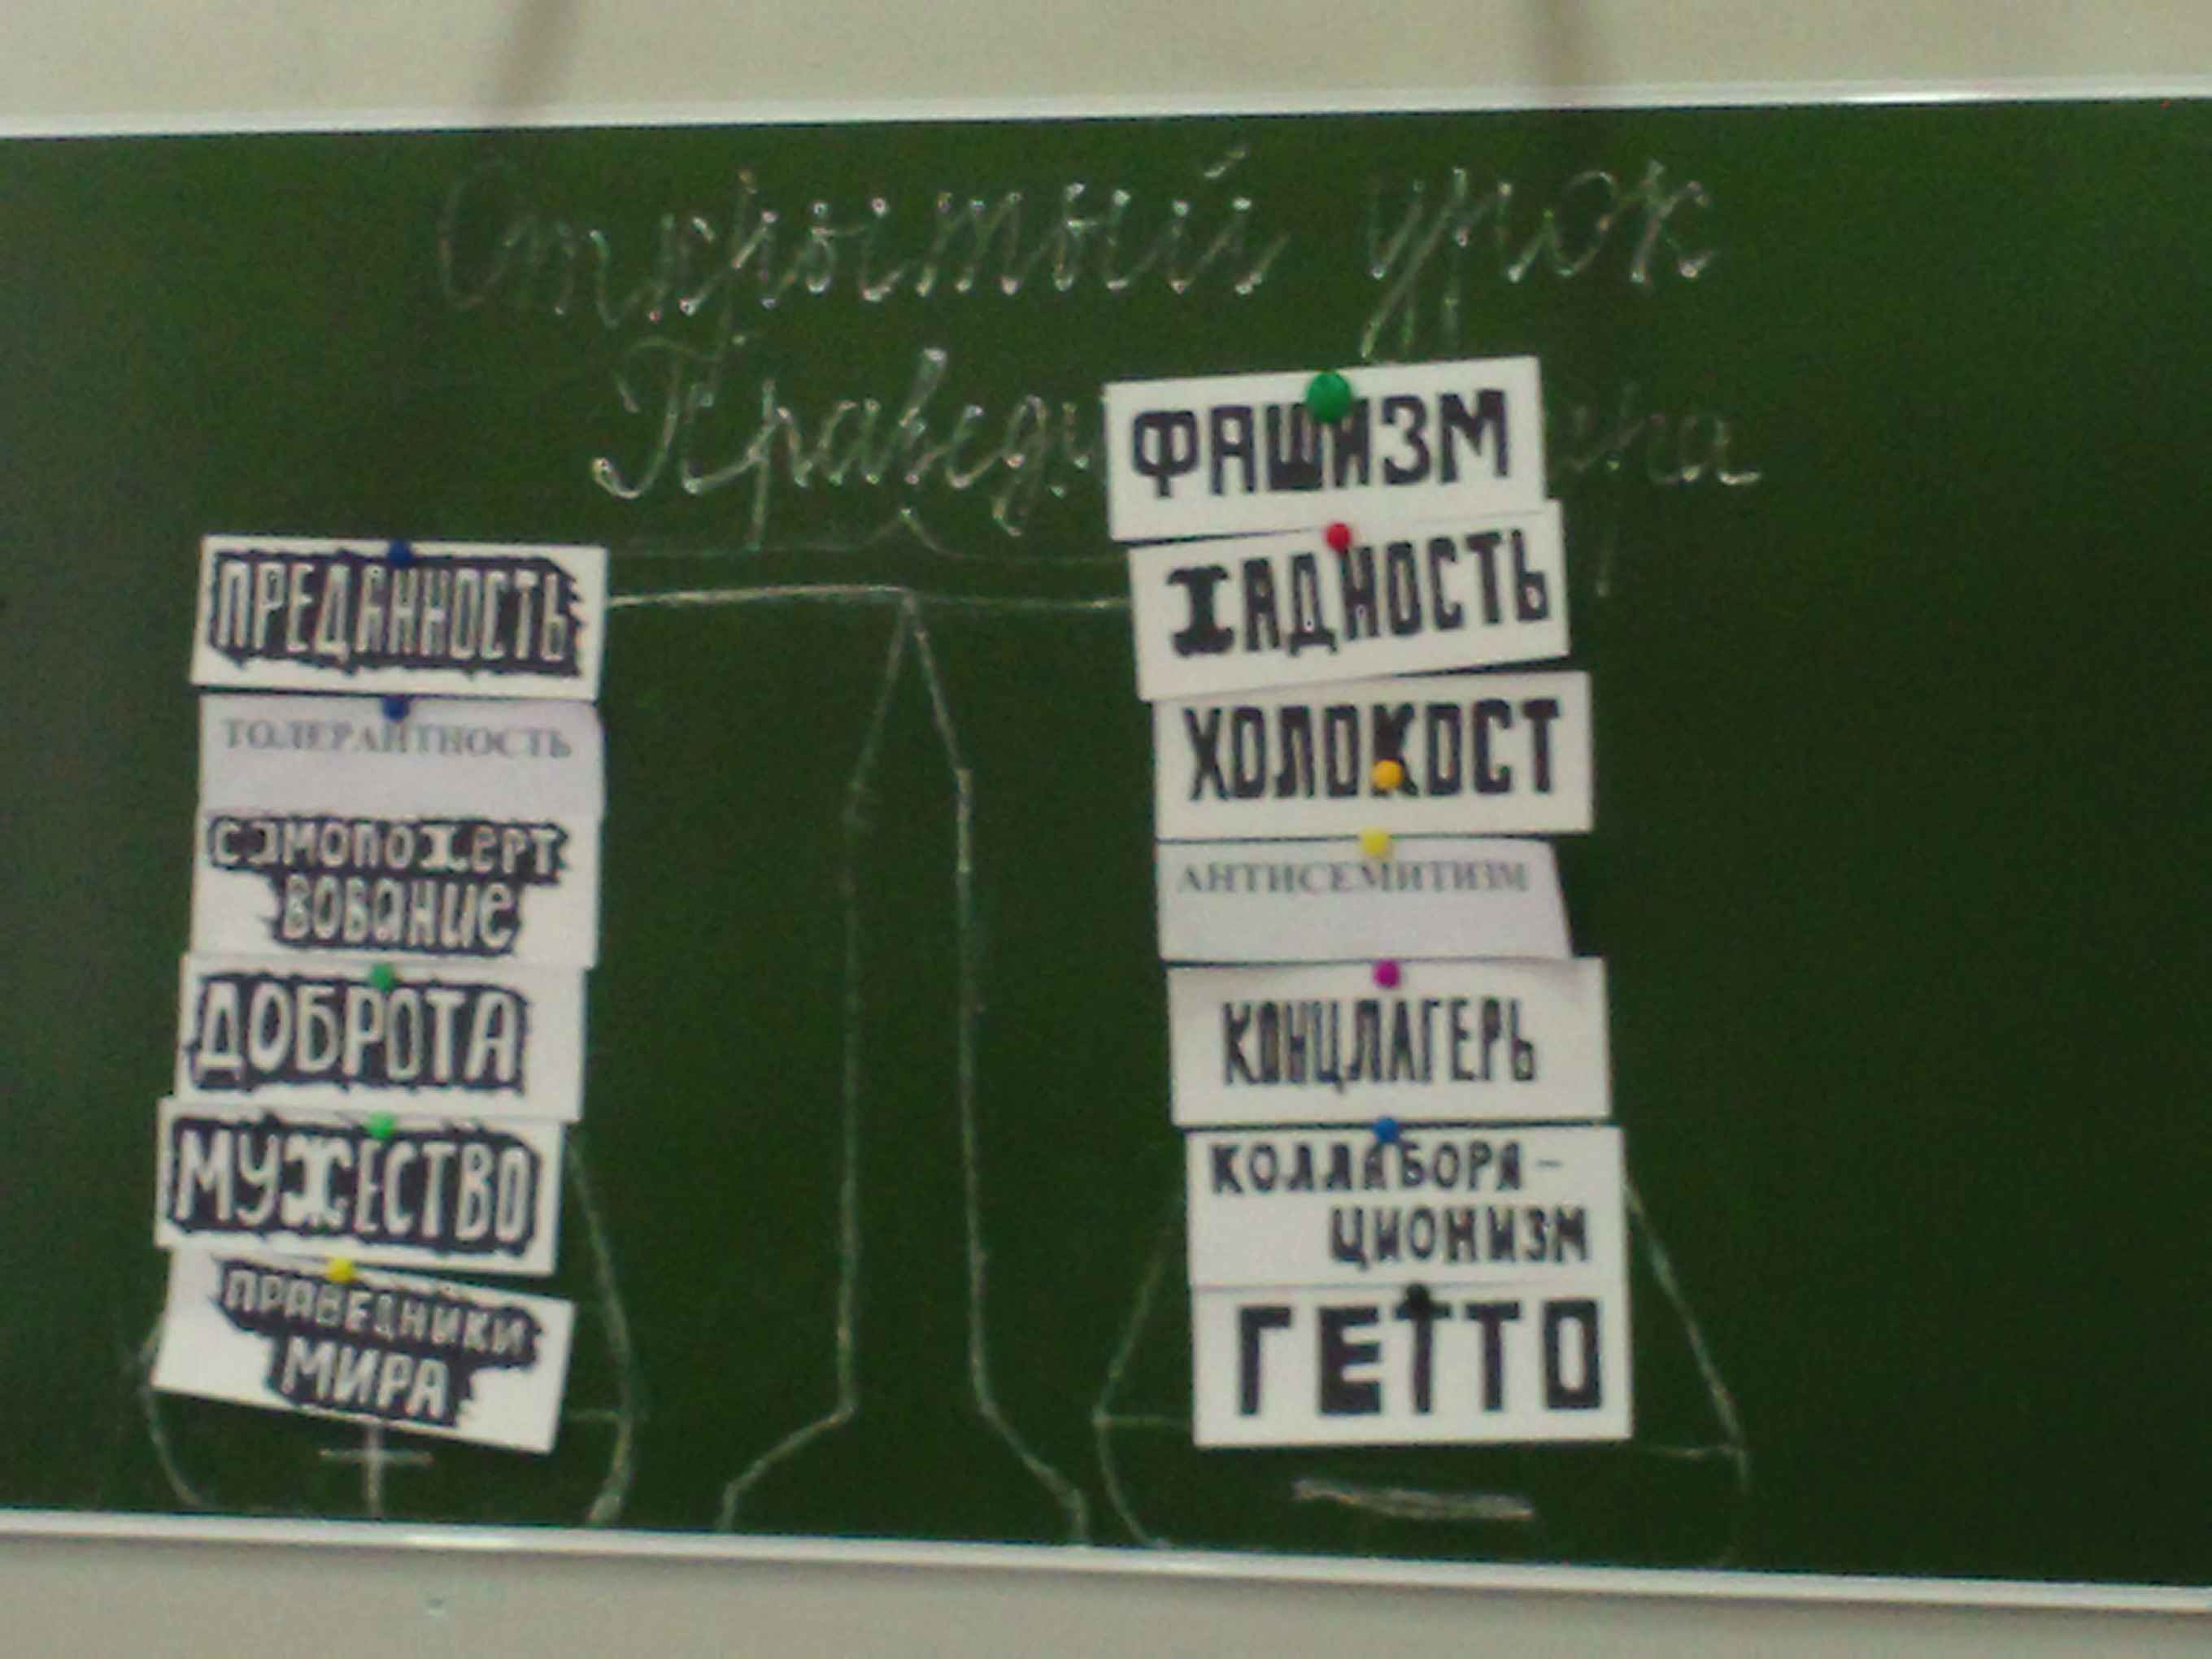 Открытый урок
ПРЕДАННОСТЬ
ТОЛЕРАНТНОСТЬ
САМОПОЖЕРТ
ВОВАНИЕ
ДОБРОТА
МУЖЕСТВО
ПРАВЕДНИКИ
МИРА
ФАШИЗМ
ЖАДНОСТЬ
ХОЛОКОСТ
АНТИСЕМИТИЗМ
КОНЦЛАГЕРЬ
КОЛЛАБОРА-
ЦИОНИЗМ
ГЕТТО